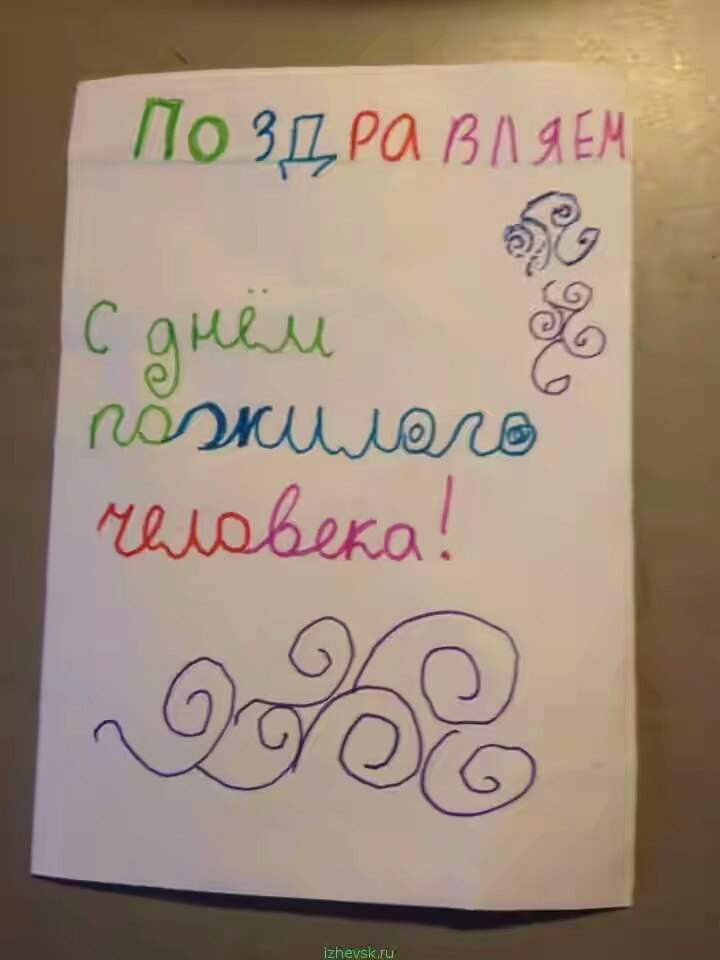 ПОЗДРАВЛЯЕМ
с днём
пожилого
человека!
izhevsk.ru